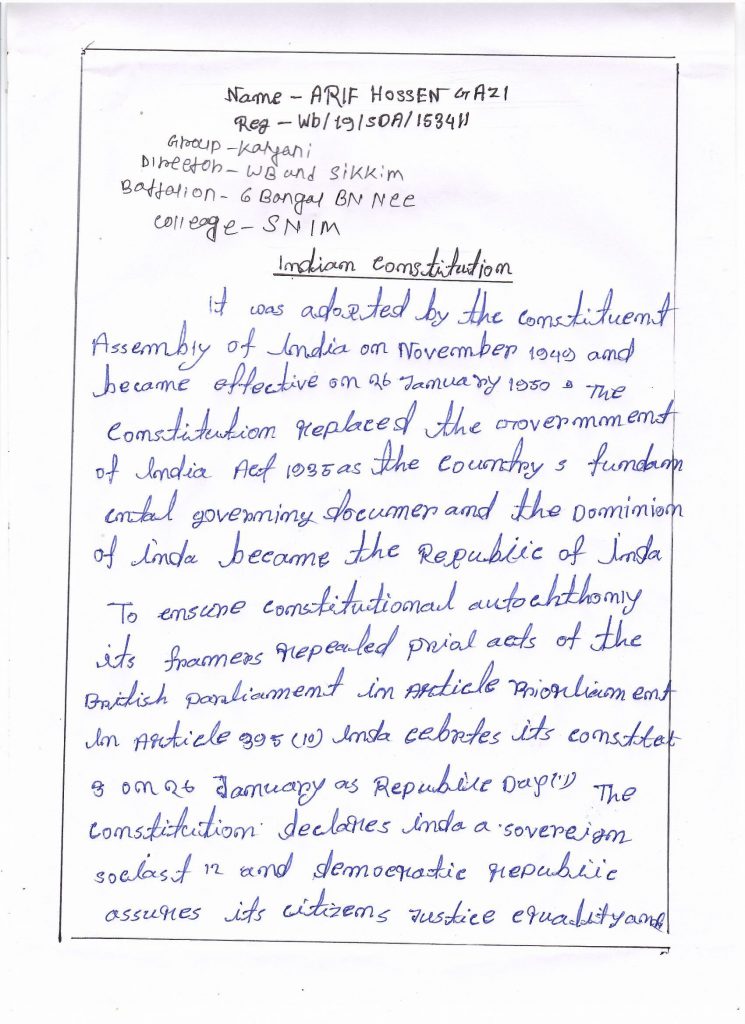 Name - ARIF HOSSEN GAZI
Reg - Wb/19/SDA/153411
Group - Kalyani
Director - WB and Sikkim
Battalion - 6 Bangal BN Ncc
college - SNIM
Indian Constitution
It was adopted by the constituent
Assembly of India on November 1949 and
became effective on 26 January 1950 . The
Constitution replaced the Government
of India Act 1935 as the country s fundam
ental governing documer and the Dominion
of inda became the Republic of inda
To ensure constitutional autochthomy
its framers repealed prial acts of the
British parliament in Article Priorliament
in Article 395 (10) inda cebrtes its consttat
g on 26 January as Republic Day(11) The
constitution declares inda a sovereign
soclast 12 and democratic republic
assures its citizens Justice equality and